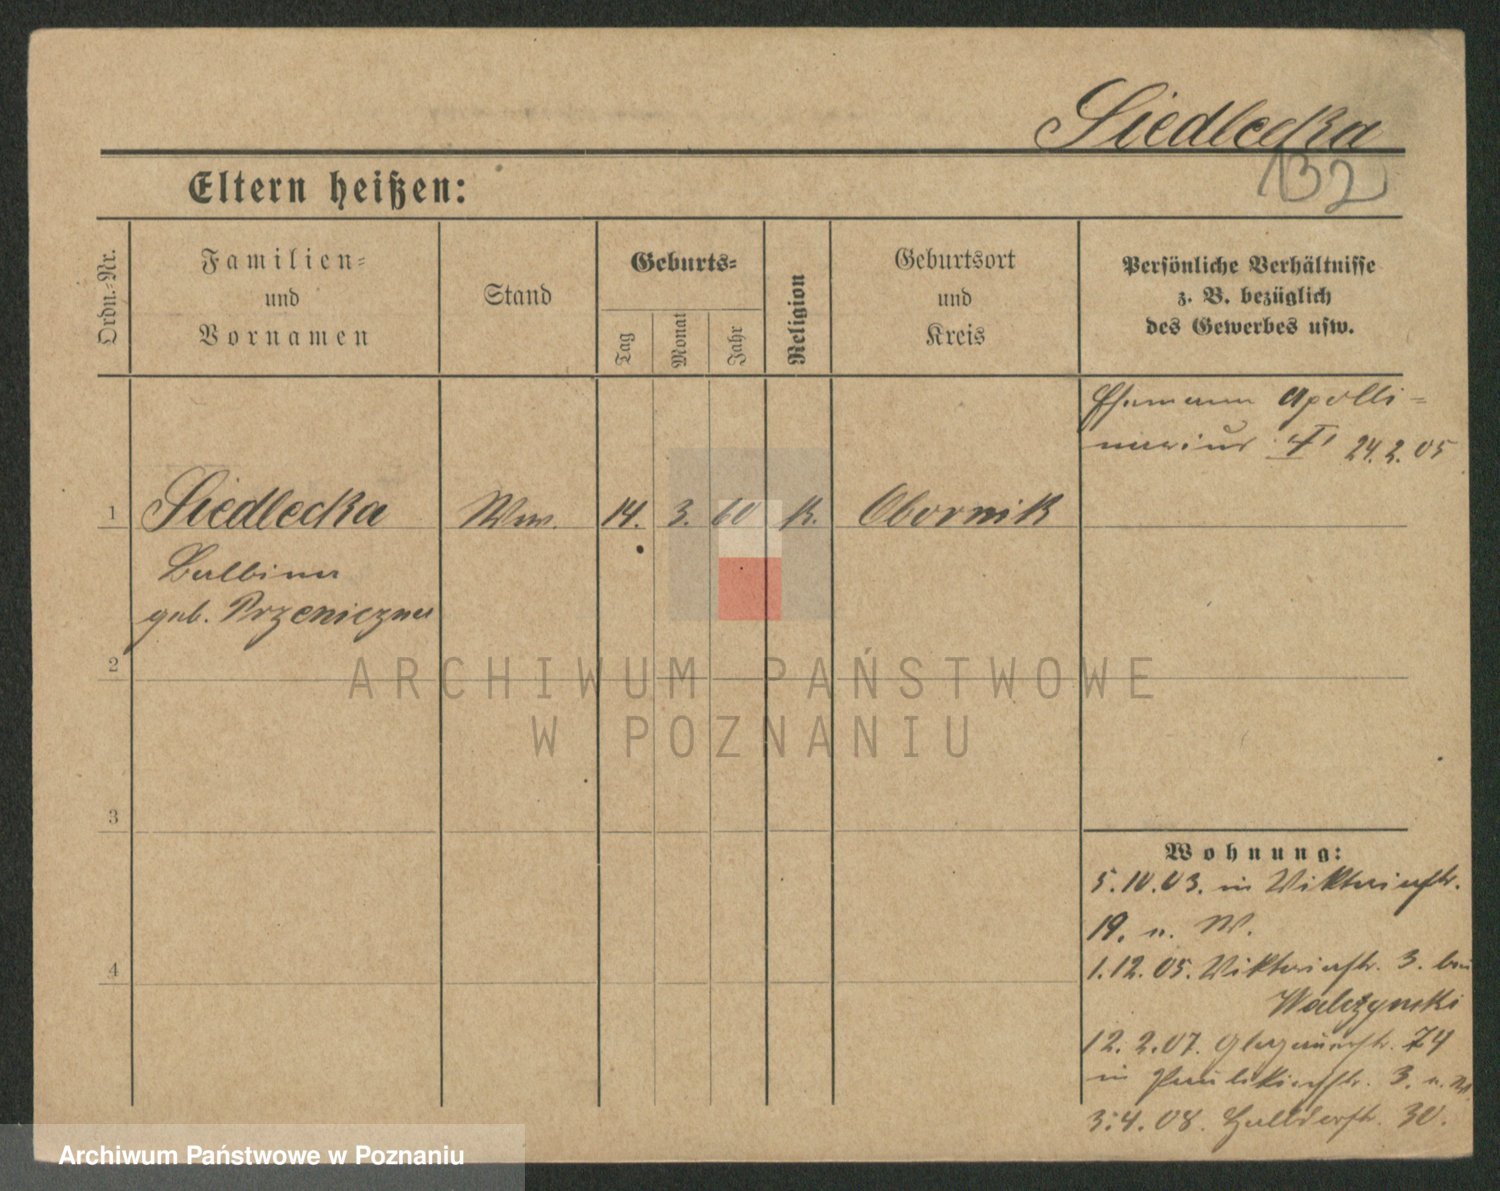 Siedlecka
132
Eltern heißen:
Ordn.-Nr.
Familien-
und
Vornamen
Stand
Geburts-
Tag
Monat
Jahr
Religion
Geburtsort
und
Kreis
Persönliche Verhältnisse
z. B. bezüglich
des Gewerbes usw.
Ehemann Apolli-
narius † 24.2.05
1 Siedlecka Ww. 14. 3. 60 k. Obornik
Balbina
geb. Przeniczna
2
3
4
Wohnung:
5.10.03. in Viktoriastr.
19. n. W.
1.12.05. Viktoriastr. 3. bei
12.2.07. 74
in Paulikirchstr. 3. n. W.
3.4.08. 30.
ARCHIWUM PAŃSTWOWE
W POZNANIU
Archiwum Państwowe w Poznaniu